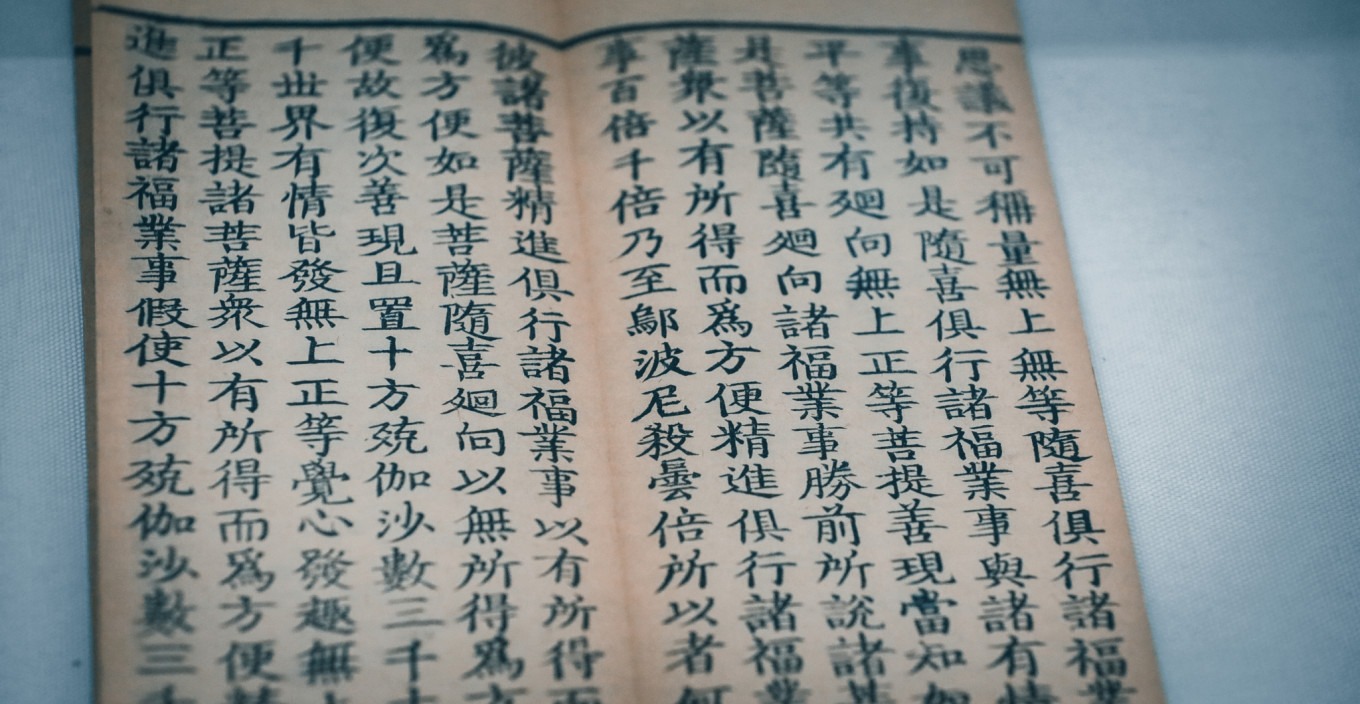 思議不可稱量無上無等隨喜俱行諸福業
事復持如是隨喜俱行諸福業事與諸有情
平等共有廻向無上正等菩提善現當知如
是菩薩隨喜廻向諸福業事勝前所說諸菩
薩衆以有所得而為方便精進俱行諸福業
事百倍千倍乃至鄔波尼殺曇倍所以者何
彼諸菩薩精進俱行諸福業事以有所得而
為方便如是菩薩隨喜廻向以無所得為方
便故復次善現且置十方殑伽沙數三千大
千世界有情皆發無上正等覺心發趣無上
正等菩提諸菩薩衆以有所得而為方便精
進俱行諸福業事假使十方殑伽沙數三千